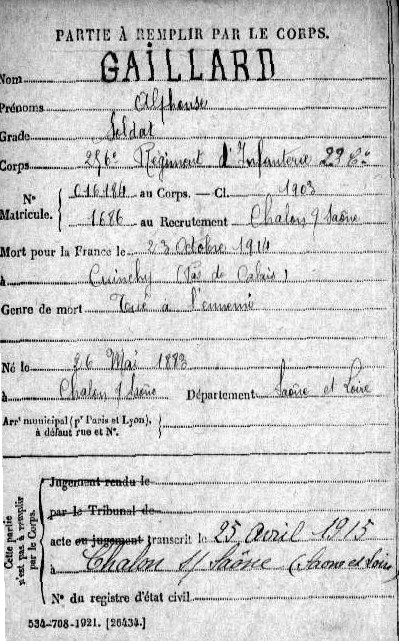 PARTIE À REMPLIR PAR LE CORPS.
GAILLARD
Nom
Prénoms Alphonse
Grade Soldat
Corps 256e Régiment d'Infanterie 23 Cie
N° Matricule. { 016184 au Corps. — Cl. 1903
1686 au Recrutement Chalon s/ Saône
Mort pour la France le 23 Octobre 1914
à Cuinchy (Pas de Calais)
Genre de mort Tué à l'ennemi
Né le 26 Mai 1883
à Chalon s/ Saône Département Saône et Loire
Arrt municipal (pr Paris et Lyon),
à défaut rue et N°.
Cette partie n'est pas à remplir par le Corps.
Jugement rendu le
par le Tribunal de
acte ou jugement transcrit le 25 Avril 1915
à Chalon s/ Saône (Saône et Loire)
N° du registre d'état civil
534-708-1921. [26434.]